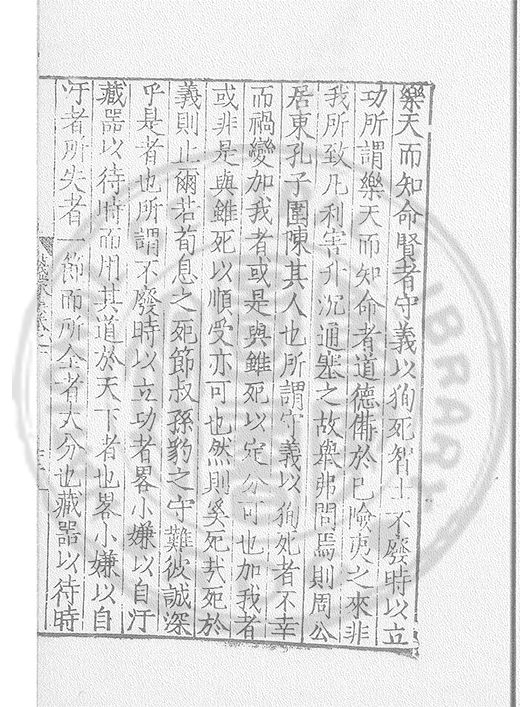 樂天而知命賢者守義以狥死智士不廢時以立
功所謂樂天而知命者道德備於已險夷之來非
我所致凡利害升沉通塞之故舉弗問焉則周公
居東孔子圍陳其人也所謂守義以狥死者不幸
而禍變加我者或是與雖死以定分可也加我者
或非是與雖死以順受亦可也然則奚死㢤死於
義則止爾若荀息之死節叔孫豹之守難彼誠深
乎是者也所謂不廢時以立功者畧小嫌以自汙
藏器以待時而用其道於天下者也畧小嫌以自
汙者所失者一節而所全者大分也藏器以待時
LIBRARY